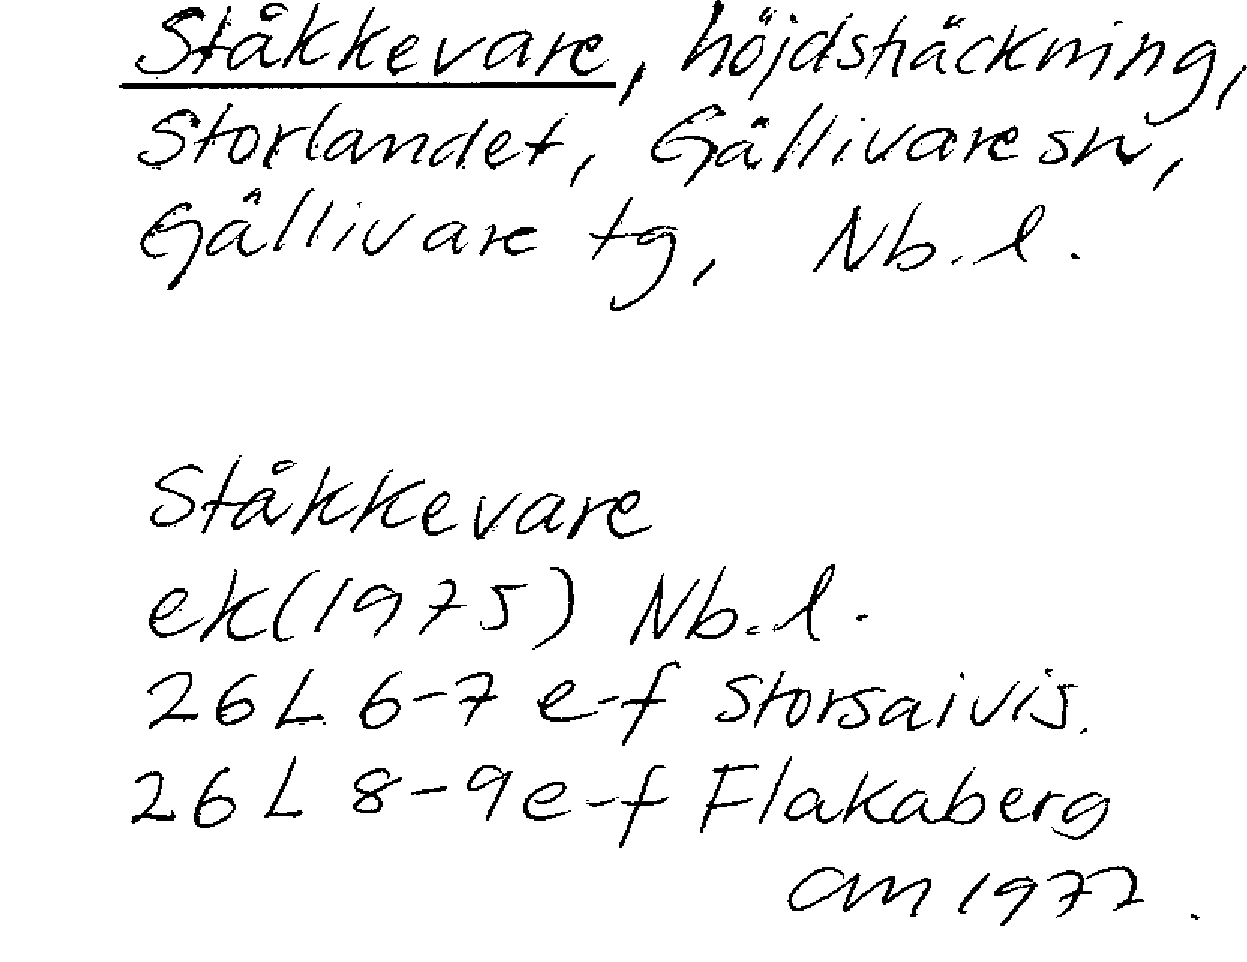 Ståkkevare, höjdsträckning,
Storlandet, Gällivare sn,
Gällivare tg, Nb.l.
Ståkkevare
ek(1975) Nb.l.
26 L 6-7 e-f Storsaivis.
26 L 8-9 e-f Flakaberg
am 1977.